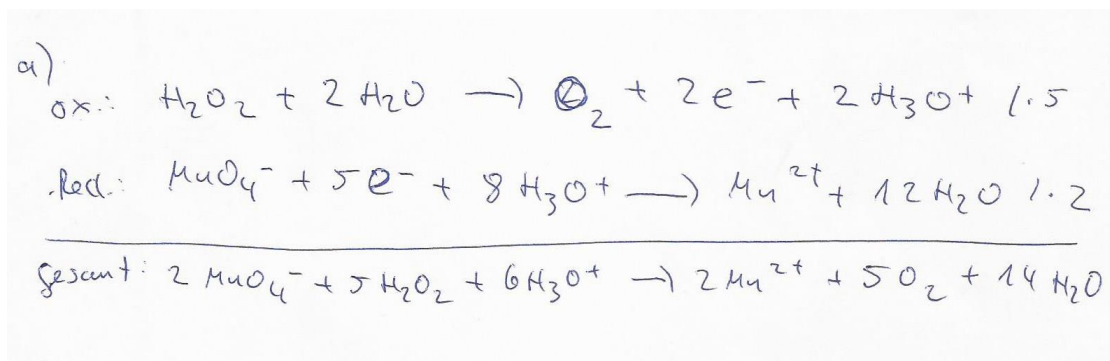 a)
Ox.: H₂O₂ + 2 H₂O → O₂ + 2e⁻ + 2 H₃O⁺ /·5
Red.: MnO₄⁻ + 5e⁻ + 8 H₃O⁺ → Mn²⁺ + 12 H₂O /·2
Gesamt: 2 MnO₄⁻ + 5 H₂O₂ + 6 H₃O⁺ → 2 Mn²⁺ + 5 O₂ + 14 H₂O